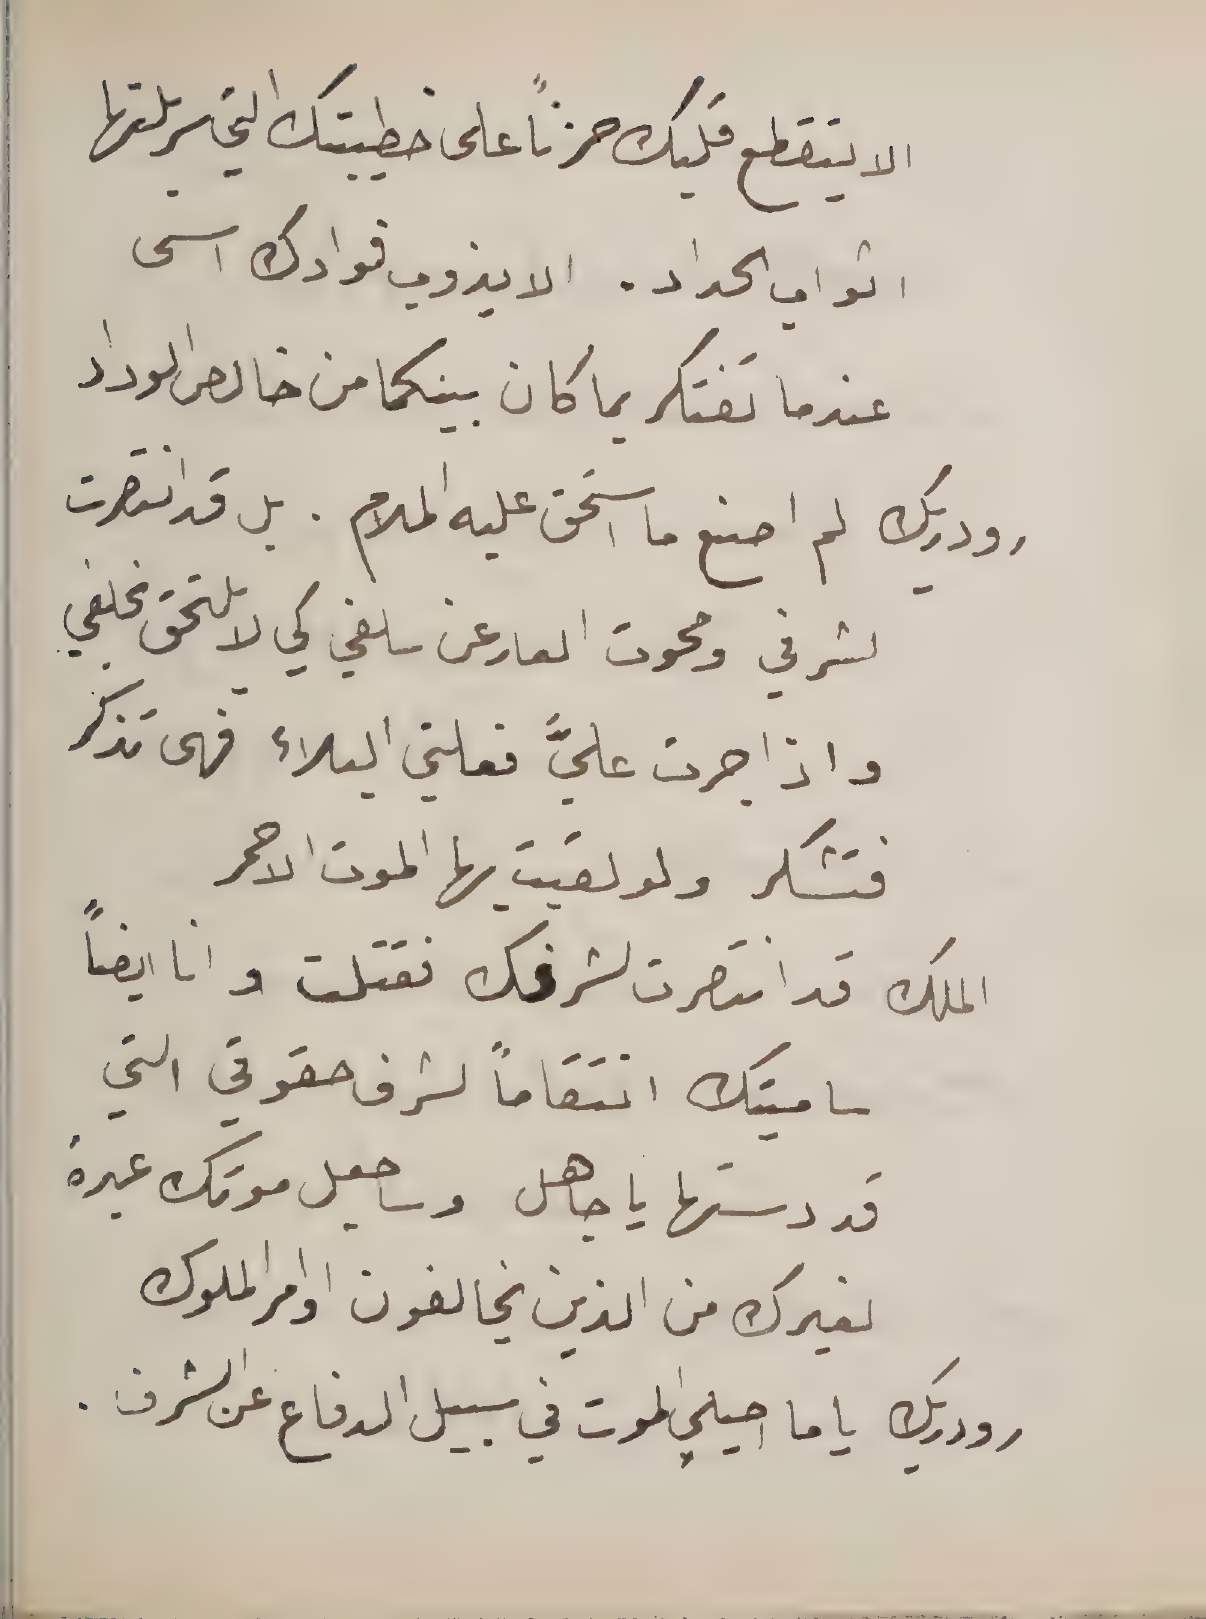 الا يتقطع قلبك حزناً على خطيبتك التي سربلتها
اثواب الحداد. الا يذوب فوادك اسى
عندما تفتكر بما كان بينكما من خالص الوداد
رودريك لم اصنع ما استحق عليه الملام. بل قد انتصرت
لشرفي ومحوت العار عن سلفي كي لا يلتحق بخلفي
واذا جرت عليَّ فعلتي البلاء فهى تذكر
فتشكر ولو لقيت بها الموت الاحمر
الملك قد انتصرت لشرفك فقتلت و انا ايضاً
ساميتك انتقاماً لشرف حقوقي التي
قد دستها يا جاهل وساجعل موتك عبرة
لغيرك من الذين يخالفون اوامر الملوك
رودريك يا ما احيلي الموت في سبيل الدفاع عن الشرف.